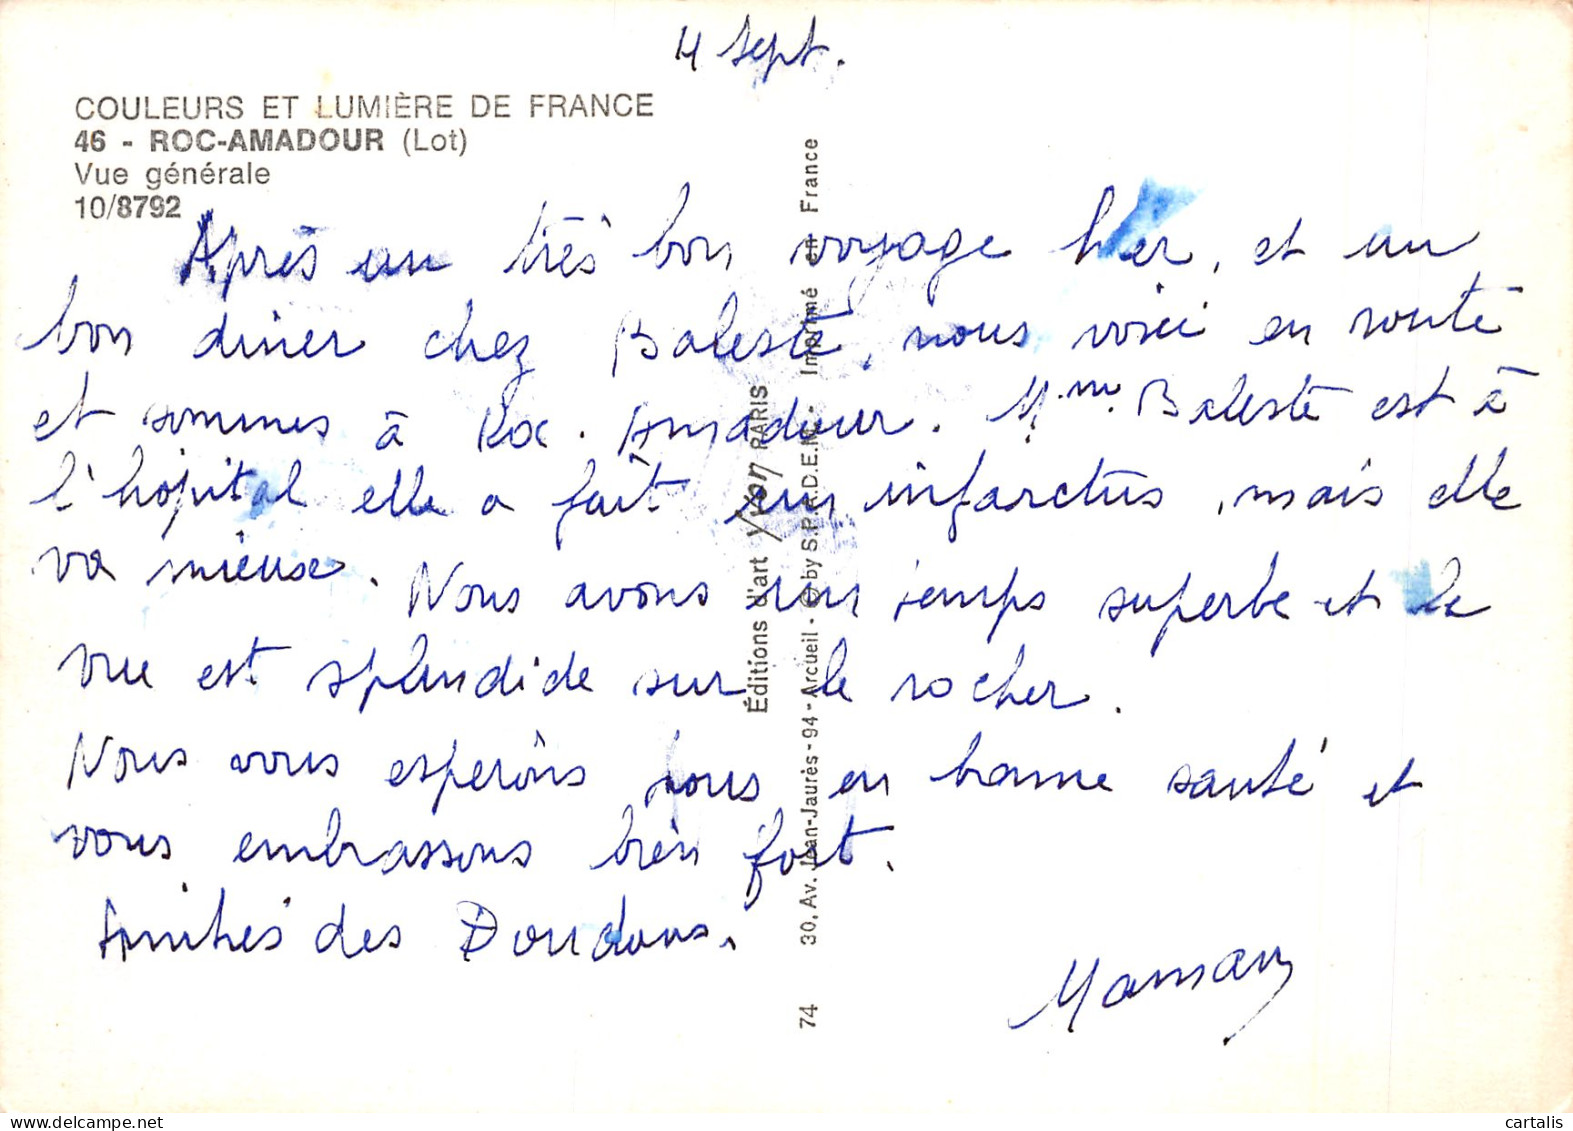 4 Sept.
COULEURS ET LUMIÈRE DE FRANCE
46 - ROC-AMADOUR (Lot)
Vue générale
10/8792
Après un très bon voyage hier, et un
bon diner chez Balesté, nous voici en route
et sommes à Roc. Amadour. Mme. Balesté est à
l'hôpital elle a fait un infarctus, mais elle
va mieux. Nous avons un temps superbe et la
vue est splendide sur le rocher.
Nous vous espérons tous en bonne santé et
vous embrassons bien fort.
Amitiés des Doudous.
Maman
Éditions d'art Yvon PARIS
30, Av. Jean-Jaurès - 94 - Arcueil - © by S.P.A.D.E.M. - Imprimé en France
74
cartalis
www.delcampe.net